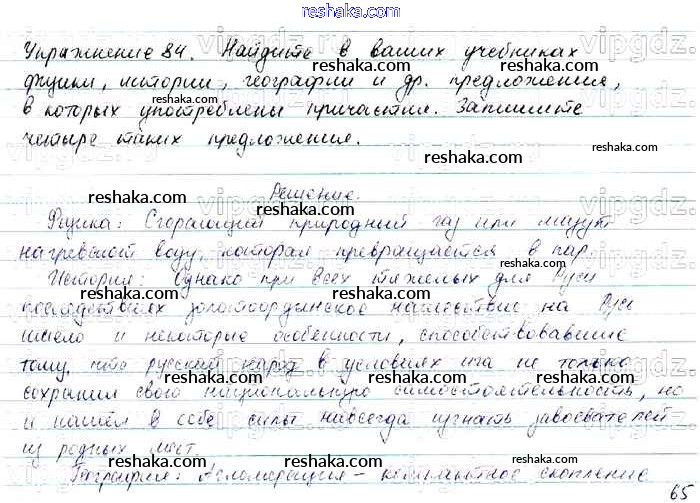 reshaka.com
Упражнение 84. Найдите в ваших учебниках
физики, истории, географии и др. предложения,
в которых употреблены причастия. Запишите
четыре таких предложения.
Решение.
Физика: Сгорающий природный газ или мазут
нагревают воду, которая превращается в пар.
История: Однако при всех тяжелых для Руси
последствиях золотоордынское нашествие на Русь
имело и некоторые особенности, способствовавшие
тому, что русский народ в условиях ига не только
сохранил свою национальную самостоятельность, но
и нашёл в себе силы навсегда изгнать завоевателей
из родных мест.
География: Агломерация - компактное скопление
65